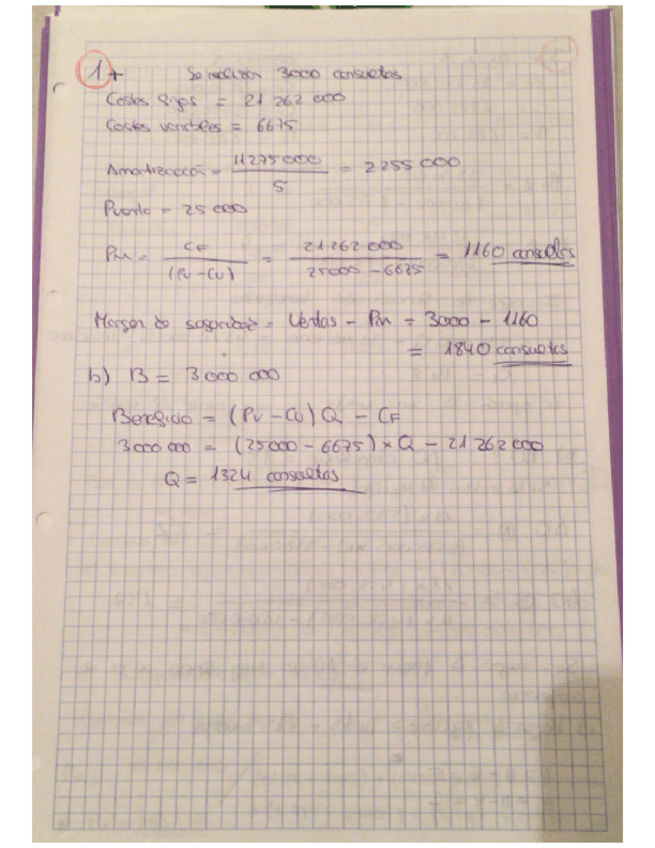 1+ Se realizan 3000 consultas
Costes fijos = 21 262 000
Costes variables = 6675
Amortización = 11275000 / 5 = 2255 000
Pventa = 25 000
PM = CF / (PV - CV) = 21 262 000 / 25000 - 6675 = 1160 consultas
Margen de seguridad = Ventas - PM = 3000 - 1160
= 1840 consultas
b) B = 3 000 000
Beneficio = (PV - CV) Q - CF
3 000 000 = (25000 - 6675) × Q - 21 262 000
Q = 1324 consultas